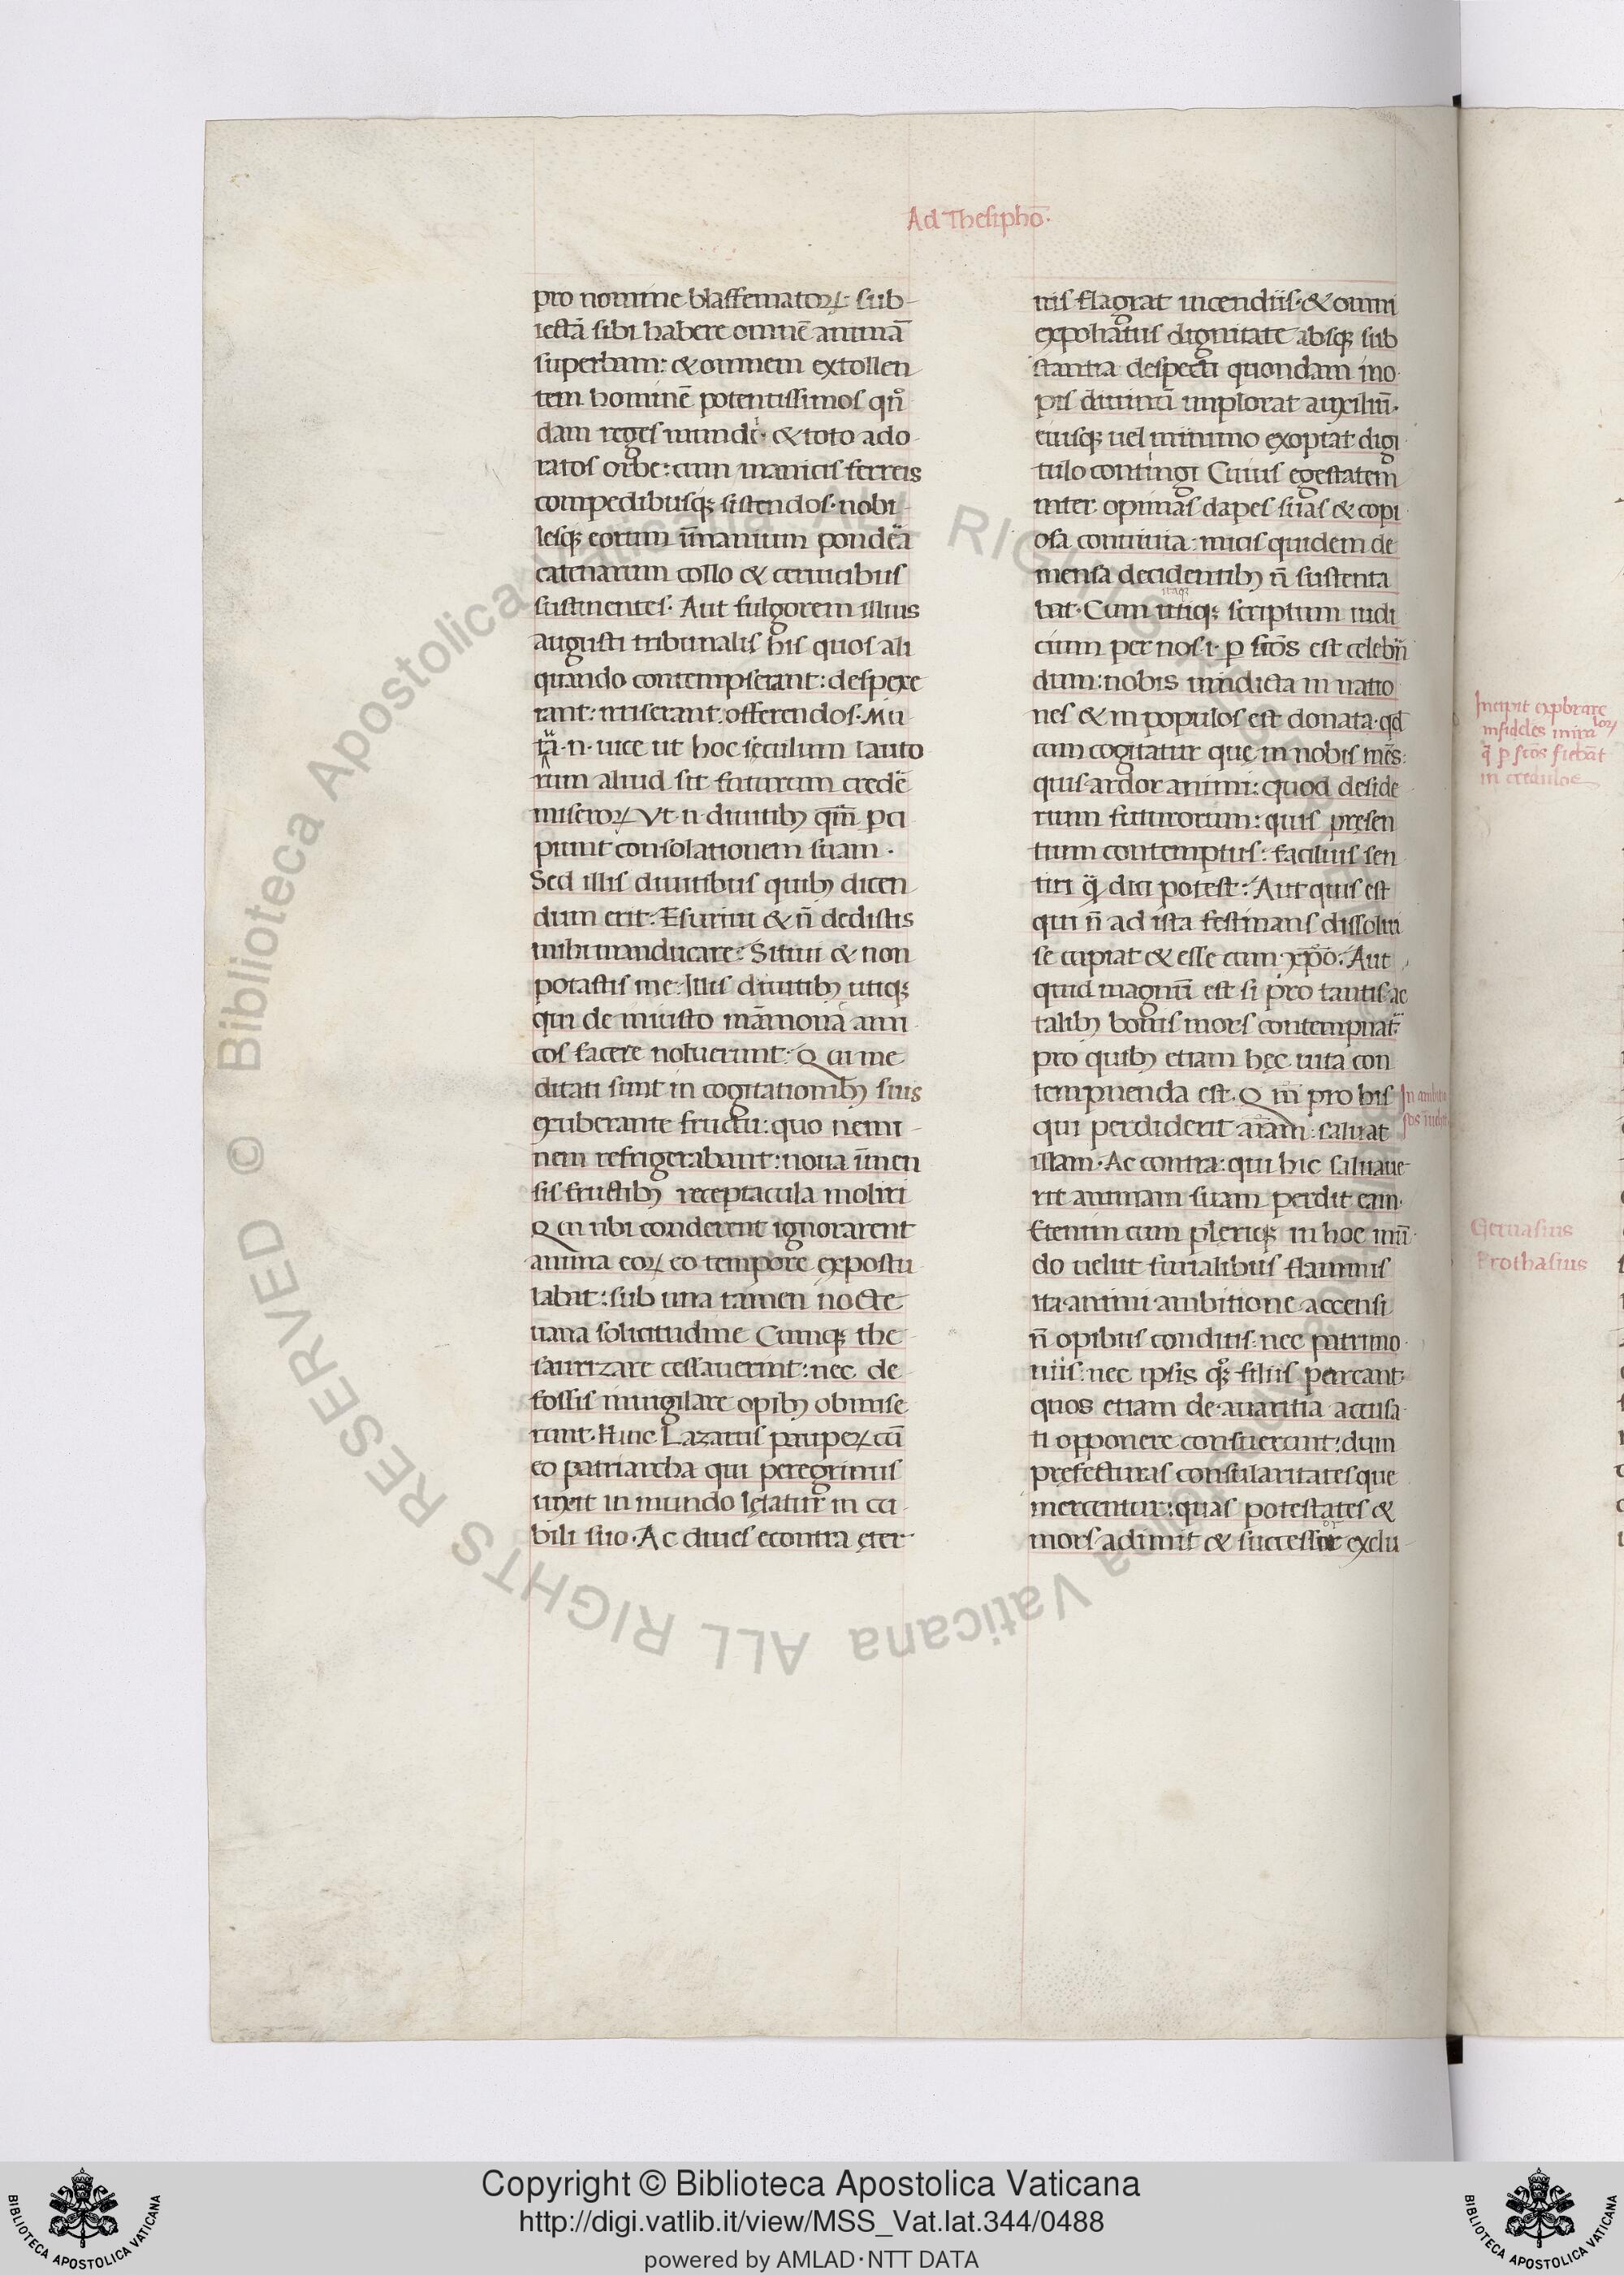 Ad Thesiphō·
pro nomine blasfematoꝝ: sub-
iectā sibi habere omnē animā
superbam: & omnem extollen-
tem hominē potentissimos qn̄-
dam reges mundi· & toto ado-
ratos orbe: cum manicis ferreis
compedibusqꝫ sistendos· nobi-
lesqꝫ eorum īmanium pondera
catenarum collo & ceruicibus
sustinentes· Aut fulgorem illius
augusti tribunalis his quos ali-
quando contempserant: despexe-
rant: irriserant: offerendos· Mu-
ta·n· uice ut hoc seculum iusto-
rum aliud sit futurum credē
miseroꝝ Vt n diuitibꝫ qm̄ ꝑci-
piunt consolationem suam·
Sed illis diuitibus quibꝫ dicen-
dum erit· Esuriui & n̄ dedistis
mihi manducare: Sitiui & non
potastis me· Illis diuitibꝫ utiqꝫ
qui de iniusto māmona ami-
cos facere noluerunt· Qui me-
ditati sunt in cogitationibꝫ suis
exuberante fructu: quo nemi-
nem refrigerabant: noua īmen-
sis fructibꝫ receptacula moliri
Qui ubi conderent ignorarent
anima eoꝝ eo tempore expostu-
labat: sub una tamen nocte
uana solicitudine Cumqꝫ the-
saurizare cessauerint: nec de-
fossis inuigilare opibꝫ obmise-
runt· Hinc Lazarus pauper cū
eo patriarcha qui peregrinus
uixit in mundo lętatur in cu-
bili suo· Ac diues econtra ęter-
nis flagrat incendiis· & omni
expoliatus dignitate absqꝫ sub-
stantia despecti quondam ino-
pis diuinū implorat auxiliū·
eiusqꝫ uel minimo exoptat digi-
tulo contingi Cuius egestatem
inter opimas dapes suas & copi-
osa conuiuia· micis quidem de
mensa decidentibꝫ n̄ sustenta-
bat· Cum utiqꝫ scriptum iudi-
itaqꝫ
cium per nos·i· ꝑ scōs est celebrā-
dum: nobis uindicta in natio-
nes & in populos est donata· qd
cum cogitatur que in nobis mēs:
quis ardor animi: quod deside-
rium futurorum: quis presen-
tium contemptus: facilius sen-
tiri qͣꝫ dici potest: Aut quis est
qui n̄ ad ista festinans dissolui
se cupiat & esse cum xp̄o: Aut
quid magnū est si pro tantis ac
talibꝫ bonis mors contempnatͬ
pro quibꝫ etiam hęc uita con-
tempnenda est. Qm̄ pro his
qui perdiderit aīam: saluat
illam· Ac contra: qui hic saluaue-
rit animam suam perdit eam·
Etenim cum pleriqꝫ in hoc mū-
do uelut furialibus flammis
ita animi ambitione accensi
n̄ opibus conditis: nec patrimo-
niis: nec ipsis qͦꝫ filiis pareant
quos etiam de auaritia accusa-
ti opponere consuerunt: dum
prefecturas consularitatesque
mercentur: quas potestates &
mors adimit & successor exclu-
In ambitio
sos
Incipit exp̄brare
infideles mira
loꝝ
q̄ ꝑ scōs fiebāt
incredulos
Geruasius
Prothasius
© Biblioteca Apostolica Vaticana ALL RIGHTS RESERVED
© Biblioteca Apostolica Vaticana ALL RIGHTS RESERVED
Copyright © Biblioteca Apostolica Vaticana
http://digi.vatlib.it/view/MSS_Vat.lat.344/0488
powered by AMLAD·NTT DATA
BIBLIOTECA APOSTOLICA VATICANA
BIBLIOTECA APOSTOLICA VATICANA